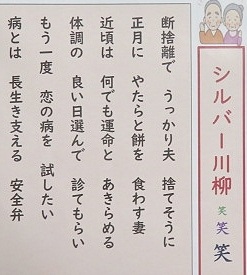 シルバー川柳
笑
笑
笑
断捨離で　うっかり夫　捨てそうに
正月に　やたらと餅を　食わす妻
近頃は　何でも運命と　あきらめる
体調の　良い日選んで　診てもらい
もう一度　恋の病を　試したい
病とは　長生き支える　安全弁